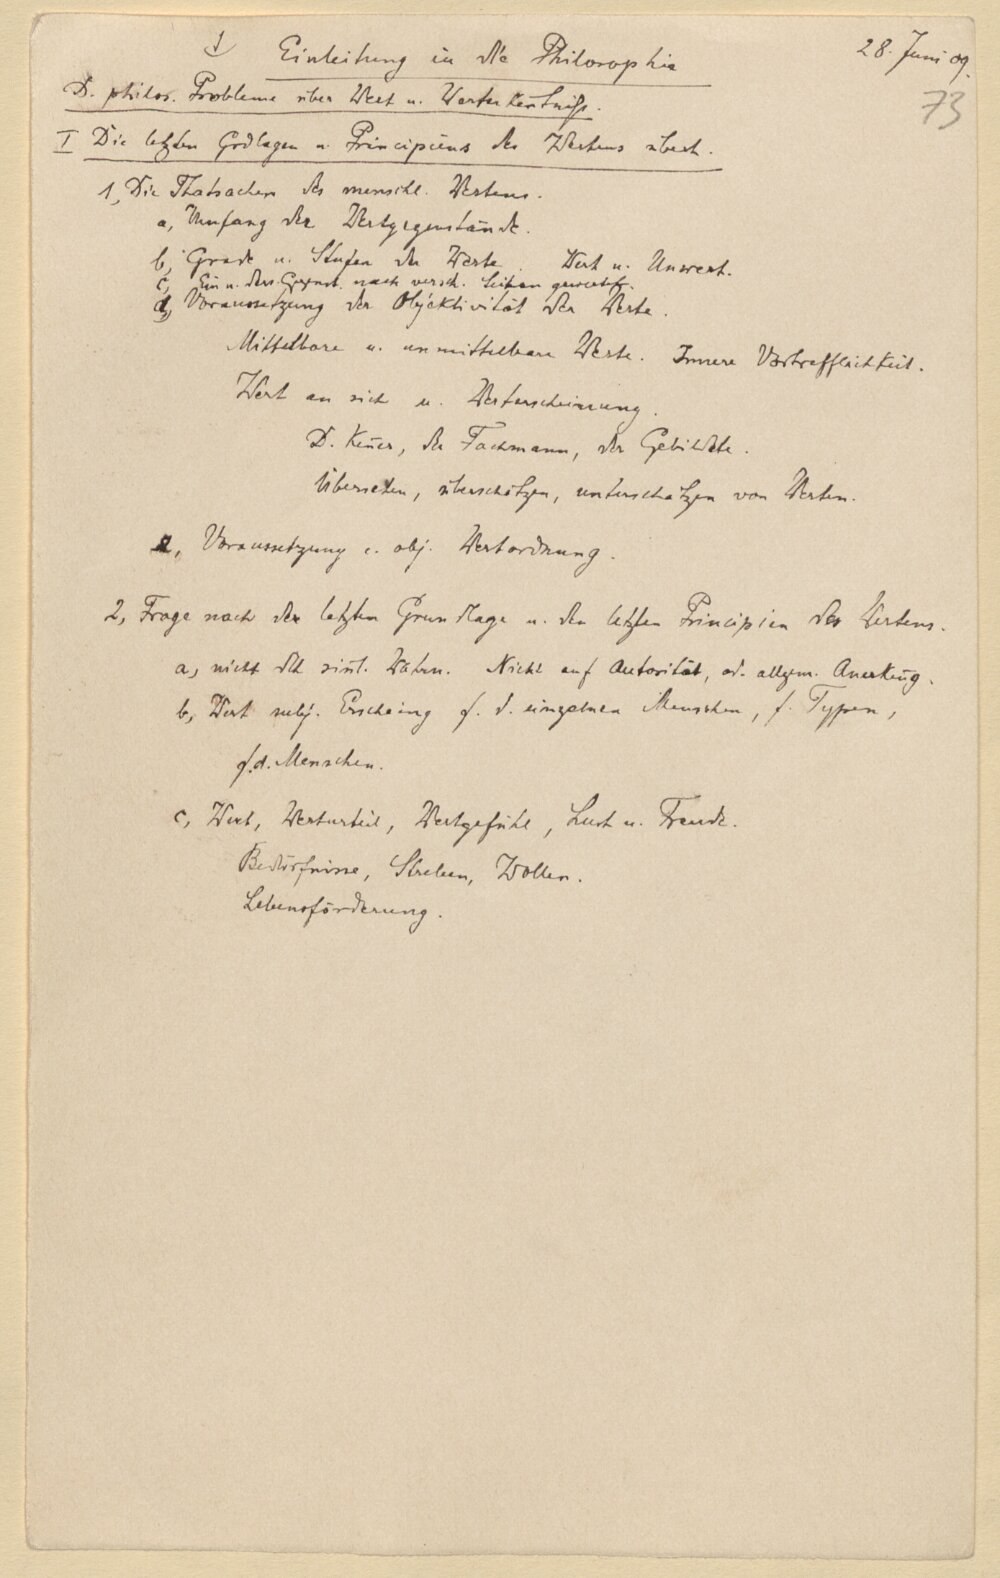 Einleitung in die Philosophie
28. Juni 09.
73
D. philos. Probleme über Wert u. Werterkentniß.
I Die letzten Grdlagen u. Principiens des Wertens überh.
1, Die Thatsachen des menschl. Wertens.
a, Umfang der Wertgegenstände.
b, Grade u. Stufen der Werte. Wert u. Unwert.
c, Ein u. ders. Gegenst. nach versch. Seiten gewertet.
d, Voraussetzung der Objektivität der Werte.
Mittelbare u. unmittelbare Werte. Innere Vortrefflichkeit.
Wert an sich u. Werterscheinung.
D. Kenner, der Fachmann, der Gebildete.
Übersehen, überschätzen, unterschätzen von Werten.
e, Voraussetzung e. obj. Wertordnung.
2, Frage nach der letzten Grundlage u. den letzten Principien des Wertens.
a, nicht dch sinl. Wahrn. Nicht auf Autorität, od. allgem. Anerkeng.
b, Wert subj. Erscheing f. d. einzelnen Menschen, f. Typen,
f. d. Menschen.
c, Wert, Werturteil, Wertgefühl, Lust u. Freude.
Bedürfnisse, Streben, Wollen.
Lebensförderung.